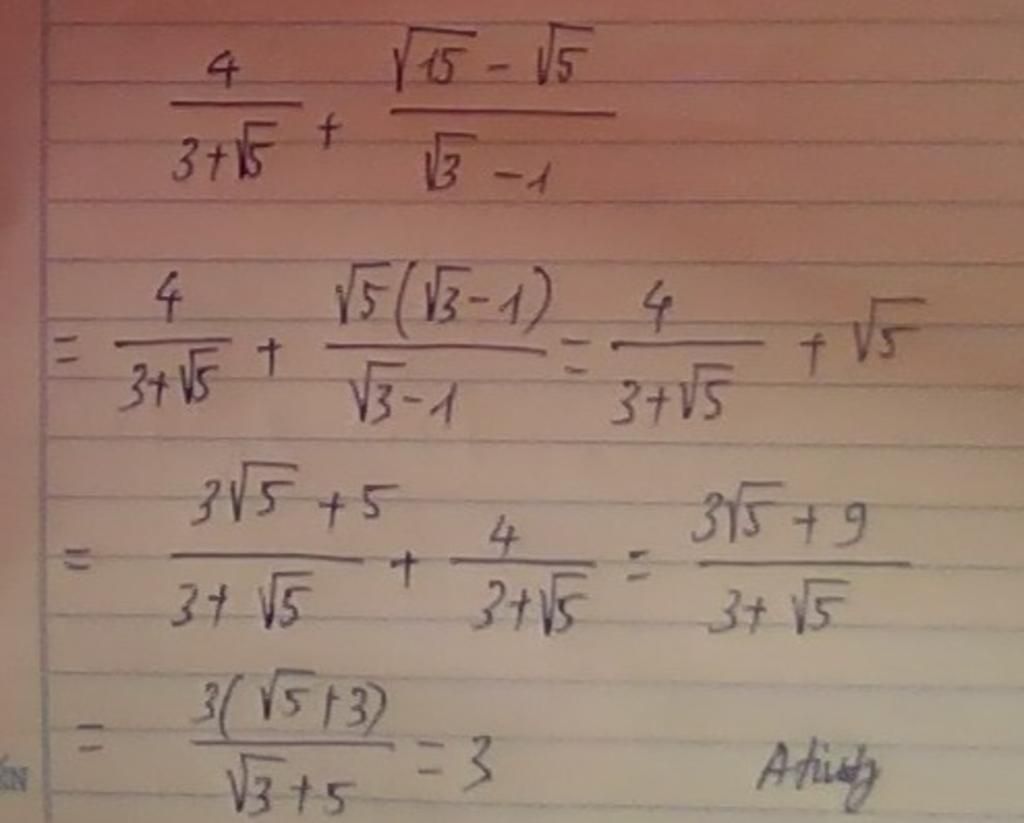 4/(3+√5) + (√15 - √5)/(√3 - 1)
= 4/(3+√5) + √5(√3-1)/(√3-1) = 4/(3+√5) + √5
= (3√5 + 5)/(3 + √5) + 4/(3+√5) = (3√5 + 9)/(3 + √5)
= 3(√5+3)/(√3+5) = 3